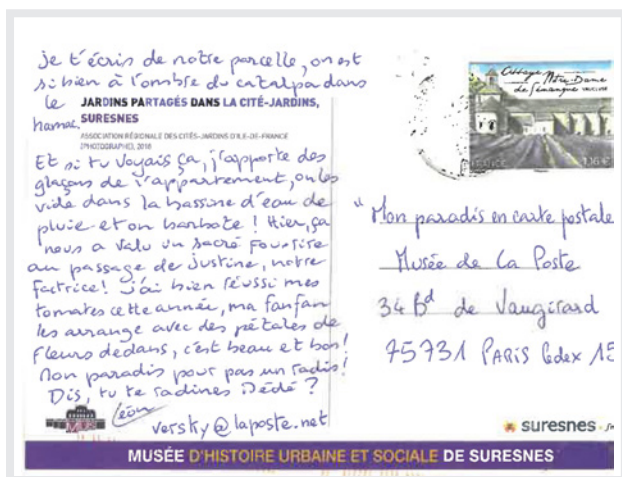 je t'écris de notre parcelle, on est
si bien à l'ombre du catalpa dans
le
hamac.
JARDINS PARTAGÉS DANS LA CITÉ-JARDINS,
SURESNES
ASSOCIATION RÉGIONALE DES CITÉS-JARDINS D'ILE-DE-FRANCE
(PHOTOGRAPHE), 2018
Et si tu voyais ça, j'apporte des
glaçons de l'appartement, on les
vide dans la bassine d'eau de
pluie et on barbote ! Hier, ça
nous a valu un sacré fou-rire
au passage de Justine, notre
factrice! J'ai bien réussi mes
tomates cette année, ma fanfan
les arrange avec des pétales de
fleurs dedans, c'est beau et bon!
Mon paradis pour pas un radis!
Dis, tu te radines Dédé ?
Léon
versky@laposte.net
MUS
Abbaye Notre-Dame
de Sénanque VAUCLUSE
FRANCE
1,16 €
"Mon paradis en carte postale
Musée de La Poste
34 Bd de Vaugirard
75731 PARIS Cedex 15
suresnes
MUSÉE D'HISTOIRE URBAINE ET SOCIALE DE SURESNES